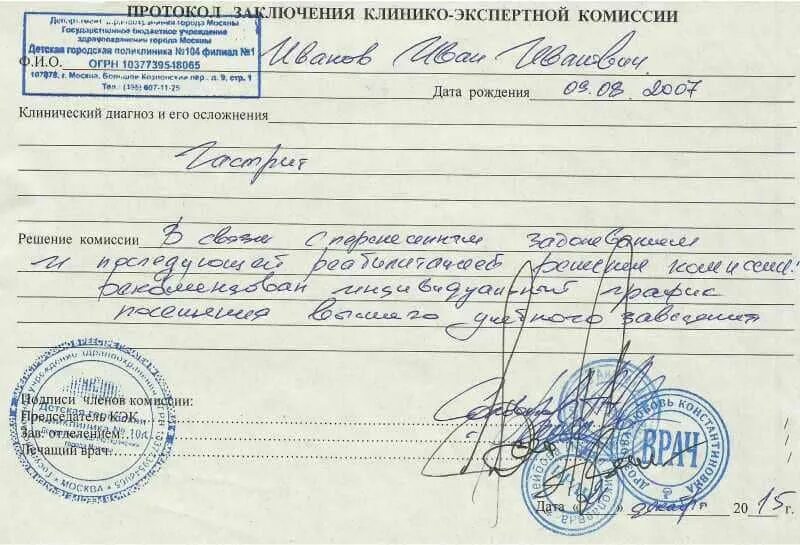 ПРОТОКОЛ ЗАКЛЮЧЕНИЯ КЛИНИКО-ЭКСПЕРТНОЙ КОМИССИИ
Государственное бюджетное учреждение
здравоохранения города Москвы
Детская городская поликлиника №104 филиал №1
ОГРН 1037739548065
107078, г. Москва, Большой Козловский пер., д. 9, стр. 1
Тел.: (495) 607-11-25
Ф.И.О. Иванов Иван Иванович
Дата рождения 09.08.2007
Клинический диагноз и его осложнения
Гастрит
Решение комиссии В связи с перенесенным заболеванием
и последующей реабилитацией решением комиссии
рекомендован индивидуальный график
посещения высшего учебного заведения
Подписи членов комиссии:
Председатель КЭК
Зав. отделением
Лечащий врач
ВРАЧ
КОНСТАНТИНОВНА
МОСКВА
Дата « » декабря 2015 г.